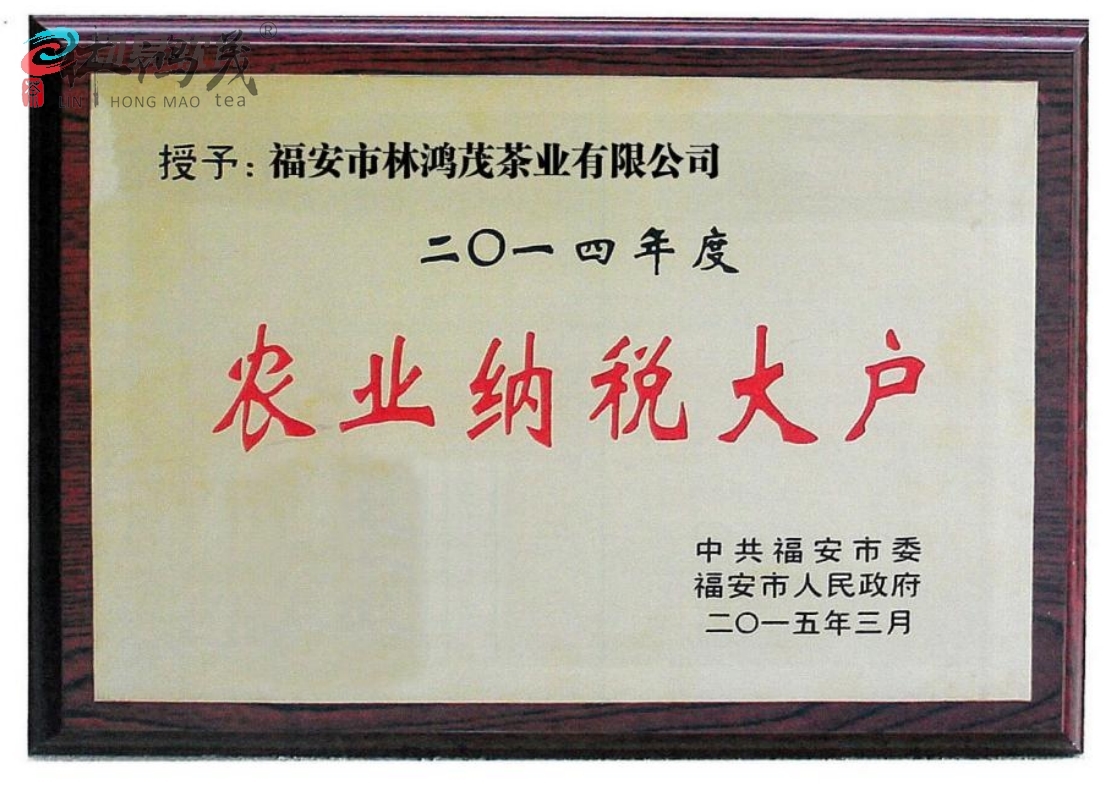 林鸿茂®
茶
LIN HONG MAO tea
授予：福安市林鸿茂茶业有限公司
二〇一四年度
农业纳税大户
中共福安市委
福安市人民政府
二〇一五年三月